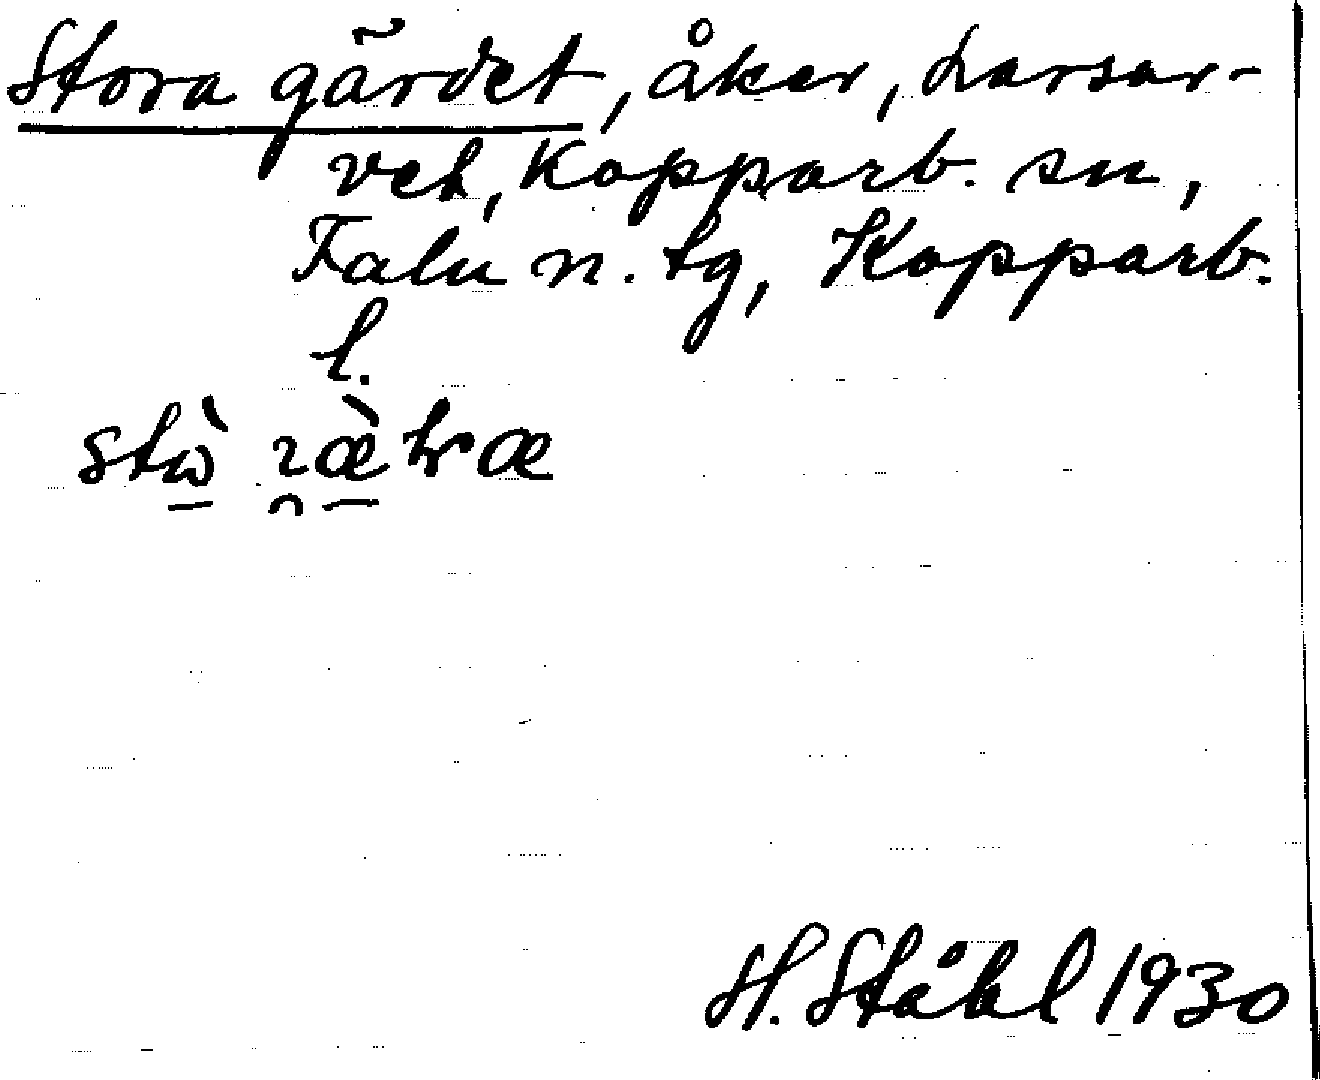 Stora gärdet, åker, Larsar-
vet, Kopparb. sn,
Falu n. tg, Kopparb.
l.
H. Ståhl 1930